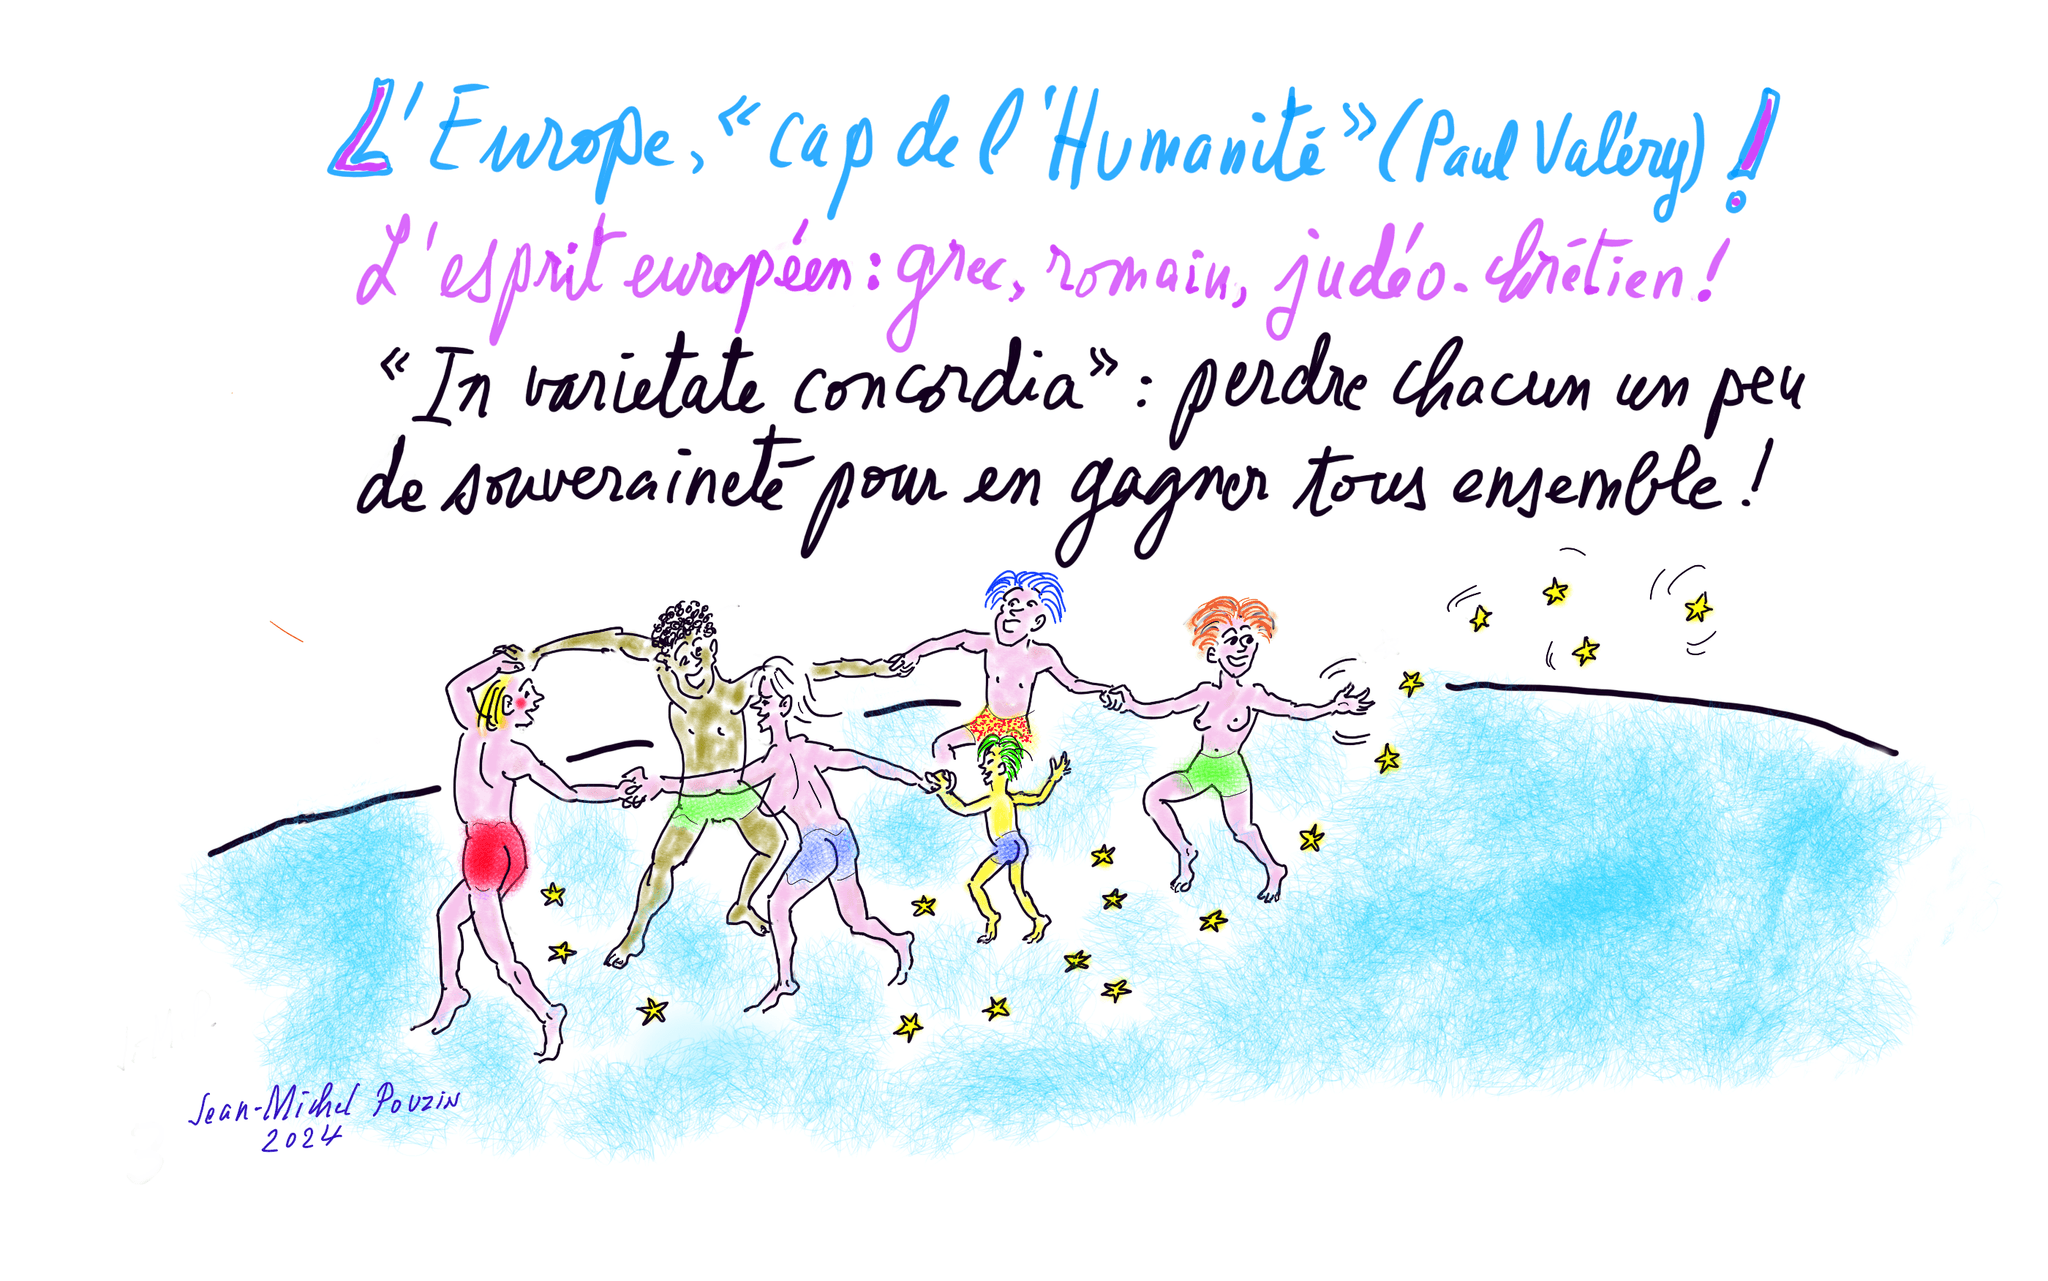 L'Europe, « cap de l'Humanité » (Paul Valéry) !
L'esprit européen : grec, romain, judéo-chrétien !
« In varietate concordia » : perdre chacun un peu
de souveraineté pour en gagner tous ensemble !
Jean-Michel Pouzin
2024